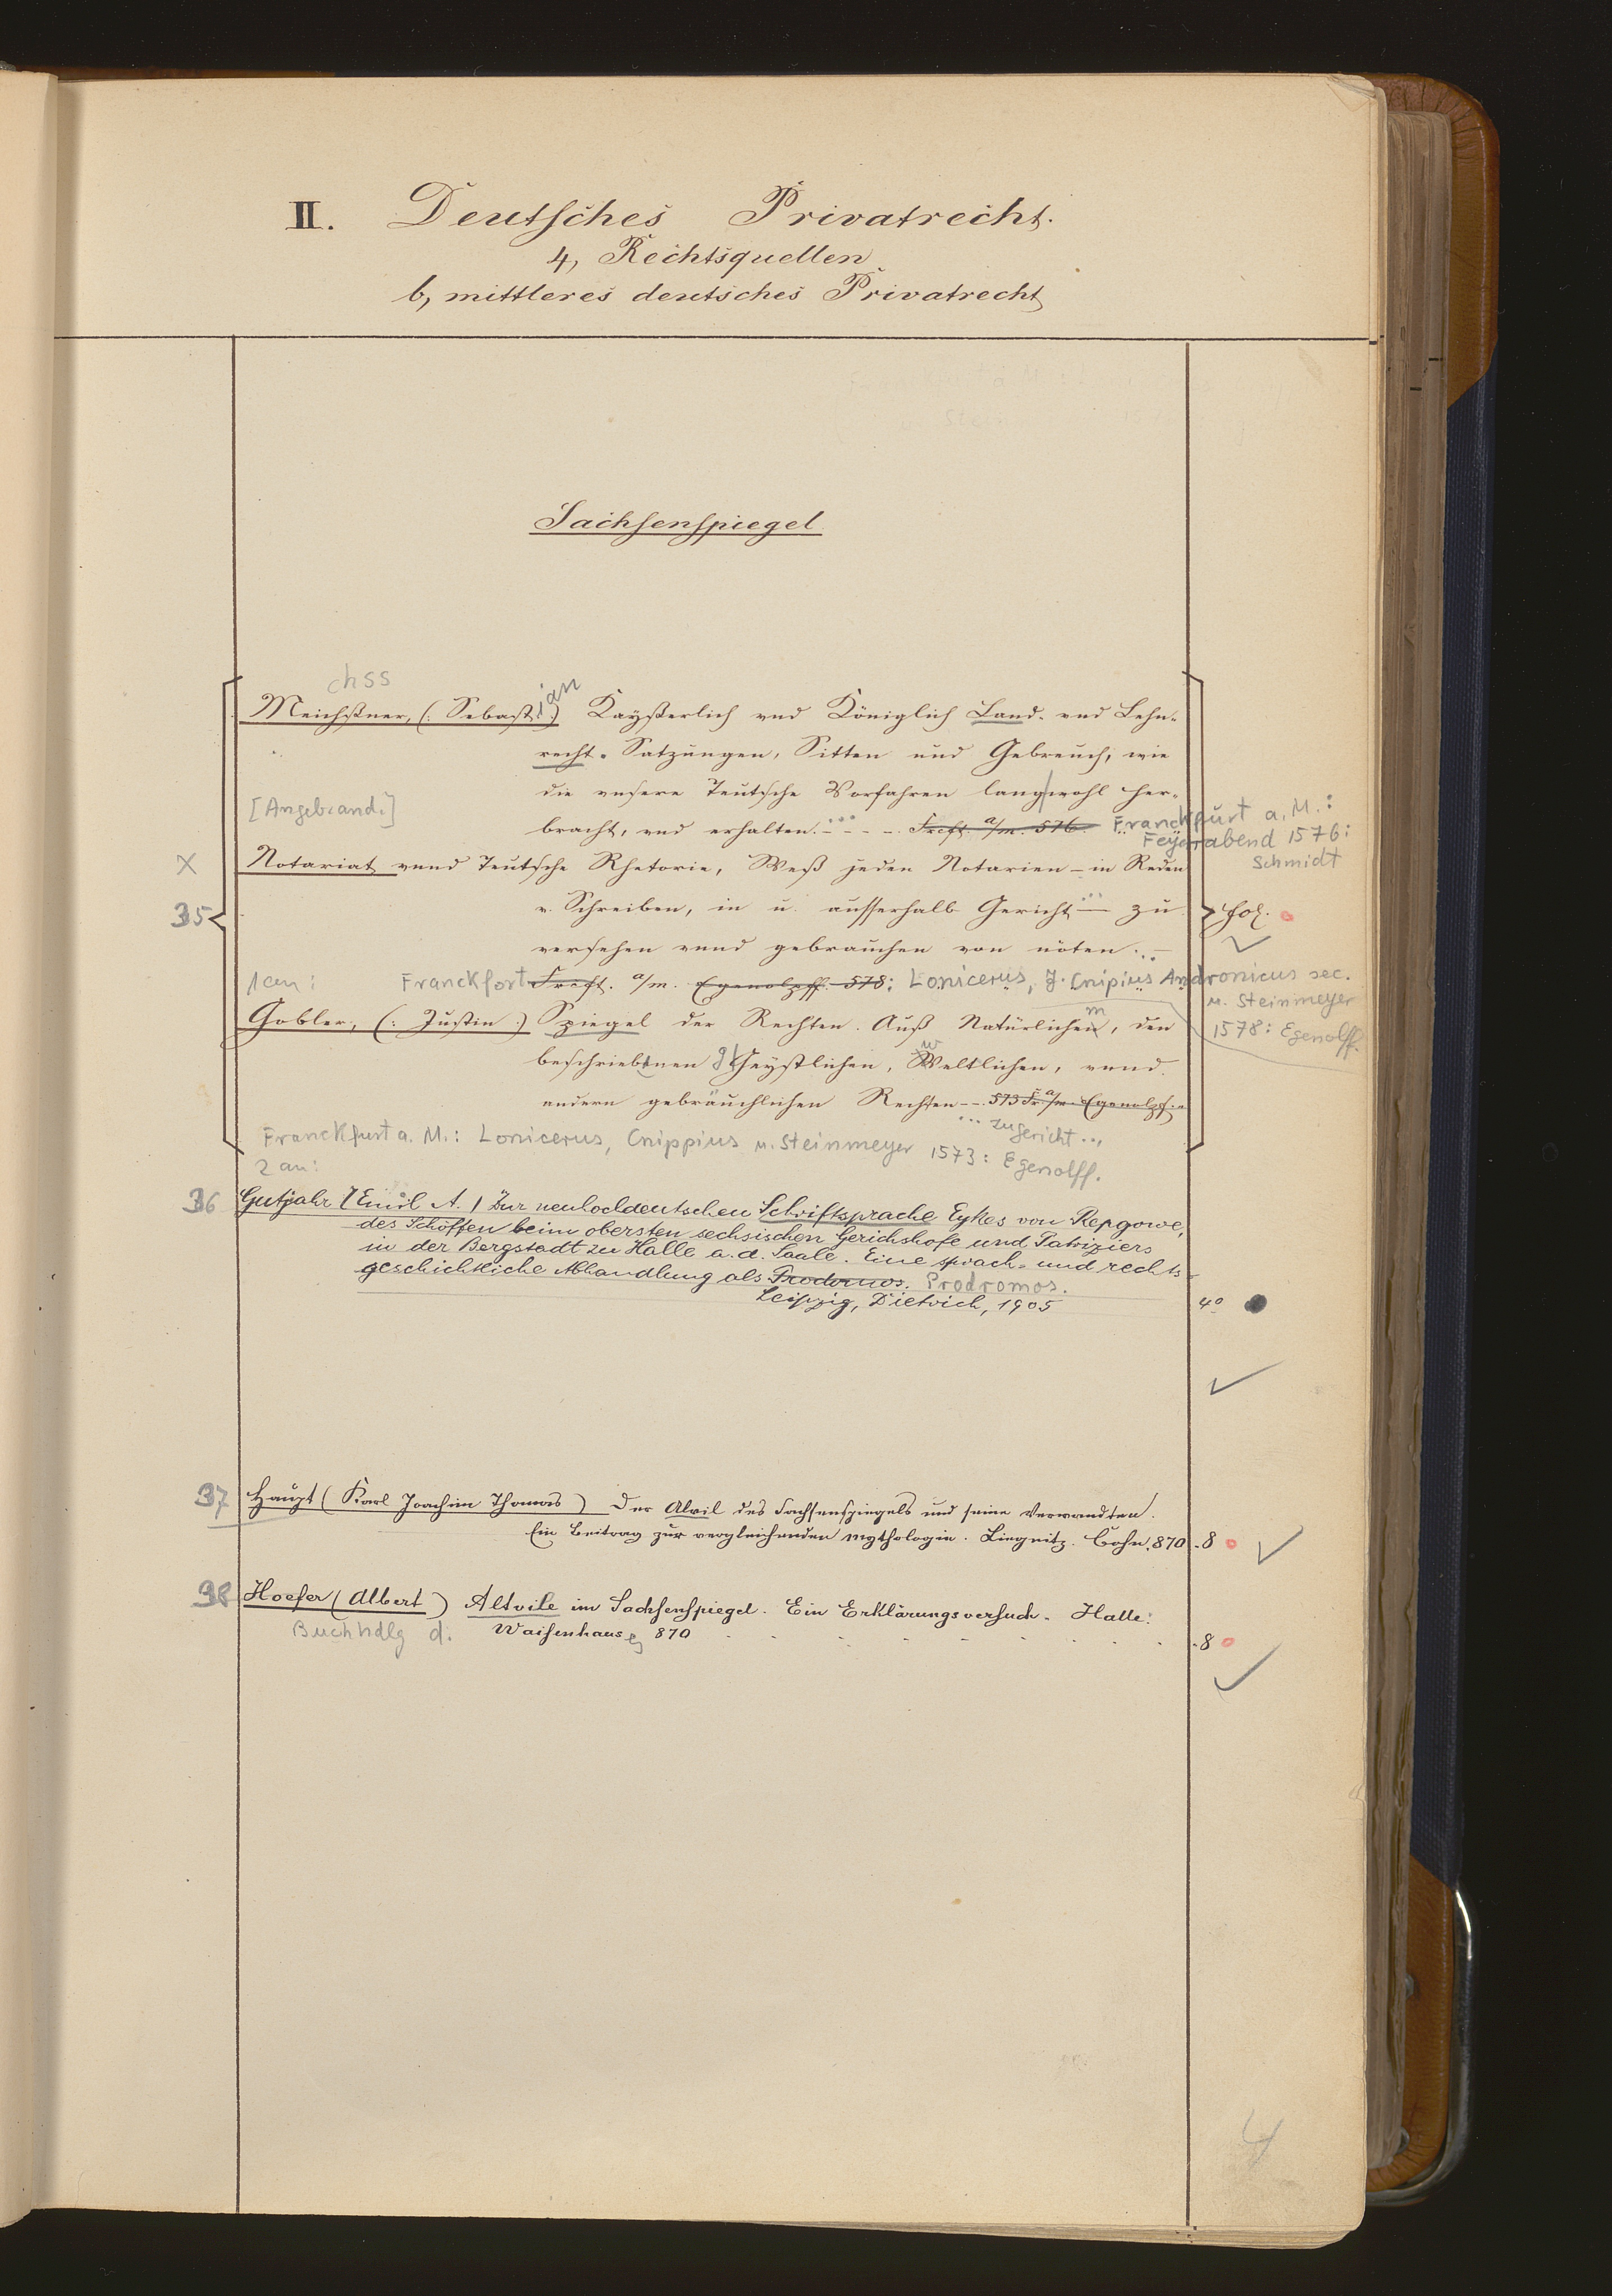 II. Deutsches Privatrecht.
4, Rechtsquellen
b, mittleres deutsches Privatrecht
Sachsenspiegel
chss
Meichßner, (: Sebastian) Kayßerlich vnd Königlich Land- vnd Lehn-
recht. Satzungen, Sitten und Gebreuch, wie
die vnsere Teutsche Vorfahren lang wohl her-
bracht, vnd erhalten. ... Frcft a/m. 576. Franckfurt a. M.:
Feyerabend 1576:
Schmidt
[Angebrand.]
X Notariat vnnd Teutsche Rhetoric, Weß jeden Notarien - in Reden
35 v. Schreiben, in u. ausserhalb Gericht ... zu fol.
versehen vnnd gebrauchen von nöten. ...
1 an: Franckfort Frcft. a/m. Egenolpff. 578: Lonicerus, J. Cnipius Andronicus sec.
u. Steinmeyer
1578: Egenolff.
Gobler, (: Justin :) Spiegel der Rechten. Auß Natürlichem, den
beschriebnen geystlichen, weltlichen, vnnd
andern gebräuchlichen Rechten -- 573 Fr. a/m. Egenolpf.
... zugericht ...
Franckfurt a. M.: Lonicerus, Cnippius u. Steinmeyer 1573: Egenolff.
2 an:
36 Gutjahr (Emil A.) Zur neuhochdeutschen Schriftsprache Eykes von Repgowe,
des Schöffen beim obersten sechsischen Gerichshofe und Patriziers
in der Bergstadt zu Halle a. d. Saale. Eine sprach- und rechts-
geschichtliche Abhandlung als Prodomos. Prodromos.
Leipzig, Dietrich, 1905 4°
37 Haupt (Karl Joachim Thomas) Der Alvil des Sachsenspiegels und seine Verwandten.
Ein Beitrag zur vergleichenden Mythologie. Liegnitz. Cohn, 870 . 8
38 Hoefer (Albert) Altvile im Sachsenspiegel. Ein Erklärungsversuch. Halle:
Buchhdlg d. Waisenhauses 870 . 8
4